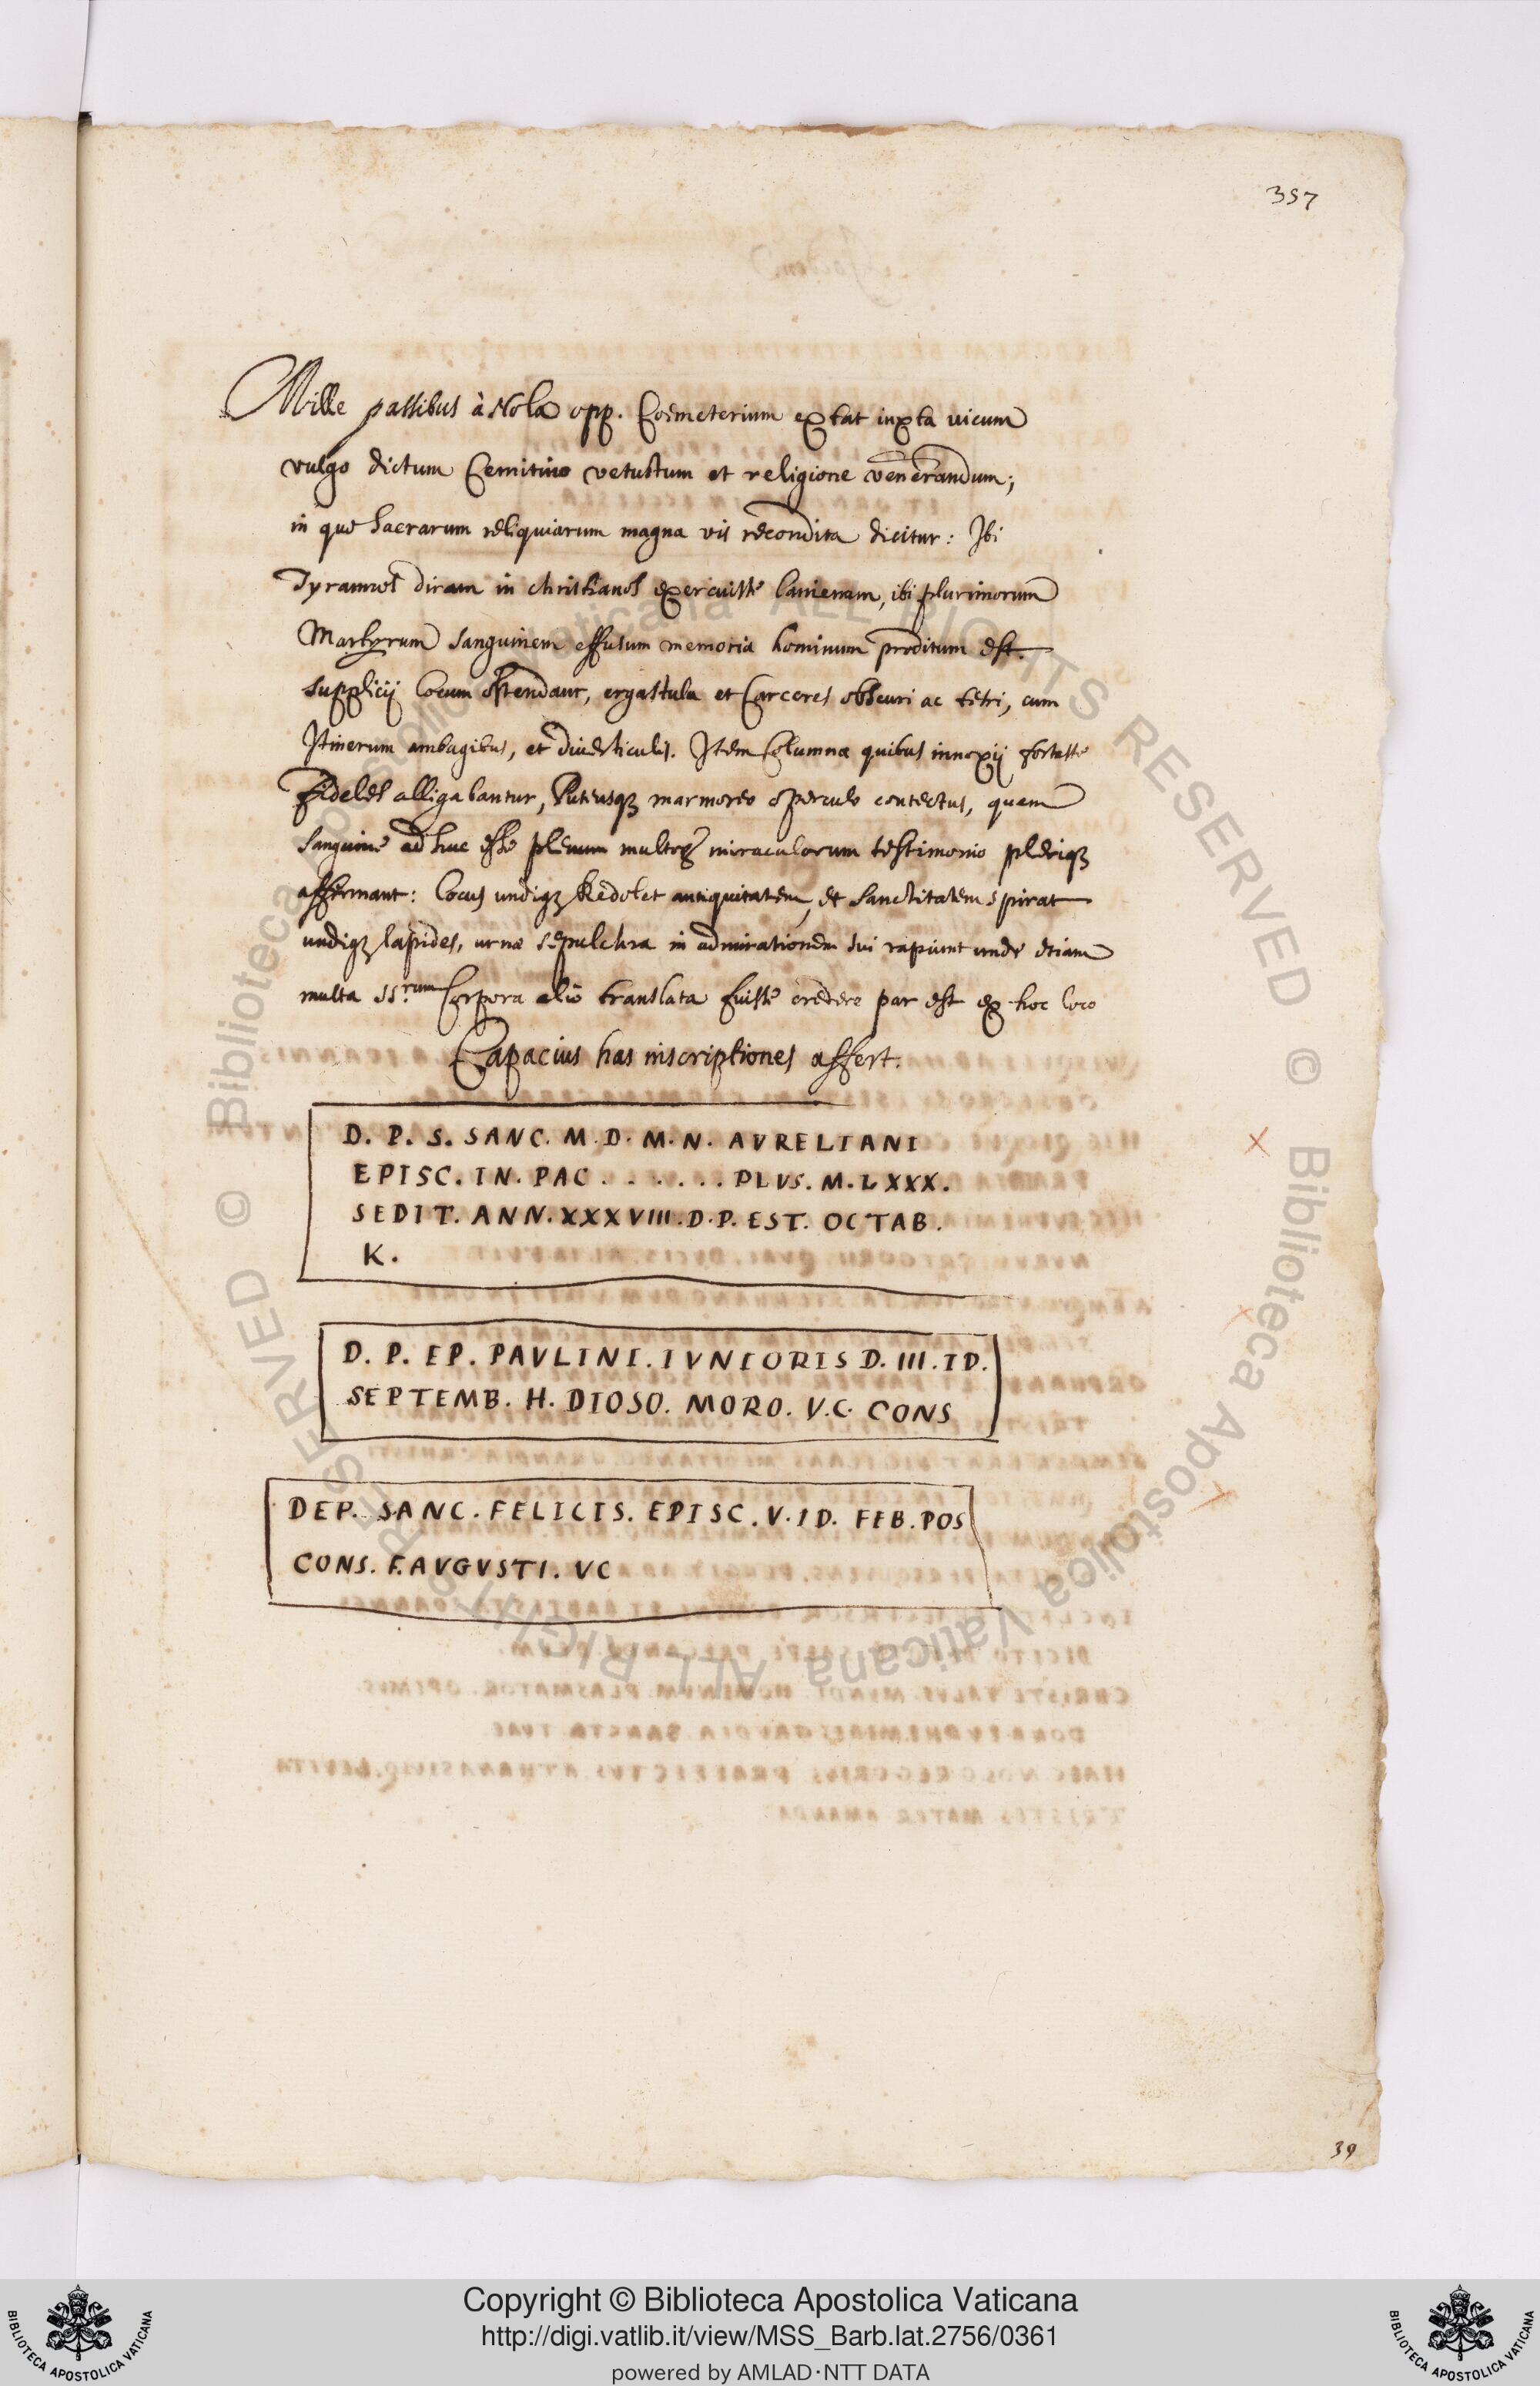 357
Mille passibus à Nola opp. Coemeterium extat iuxta uicum
vulgo dictum Cemitino vetustum et religione venerandum;
in quo sacrarum reliquiarum magna vis recondita dicitur: Ibi
Tyrannos diram in christianos exercuisse lanienam, ibi plurimorum
Martyrum sanguinem effusum memoria hominum proditum est.
supplicij locum ostendant, ergastula et Carceres obscuri ac tetri, cum
Itinerum ambagibus, et diuerticulis. Item Columnæ quibus innoxij fortasse
fideles alligabantur, Puteusq; marmoreo operculo contectus, quem
sanguine ad huc esse plenum multorum miraculorum testimonio pleriq;
affirmant: locus undiq; Redolet antiquitatem, et sanctitatem spirat
undiq; lapides, urnæ sepulchra in admirationem sui rapiunt unde etiam
multa ss.rum Corpora aliò translata fuisse credere par est ex hoc loco
Capacius has inscriptiones affert.
D. P. S. SANC. M. D. M. N. AVRELIANI
EPISC. IN. PAC . . . . . . PLVS. M. LXXX.
SEDIT. ANN. XXXVIII. D. P. EST. OCTAB.
K.
D. P. EP. PAVLINI. IVNIORIS D. III. ID.
SEPTEMB. H. DIOSO. MORO. V.C. CONS
DEP. SANC. FELICIS. EPISC. V. ID. FEB. POS
CONS. F. AVGVSTI. VC
39
Copyright © Biblioteca Apostolica Vaticana
http://digi.vatlib.it/view/MSS_Barb.lat.2756/0361
powered by AMLAD·NTT DATA